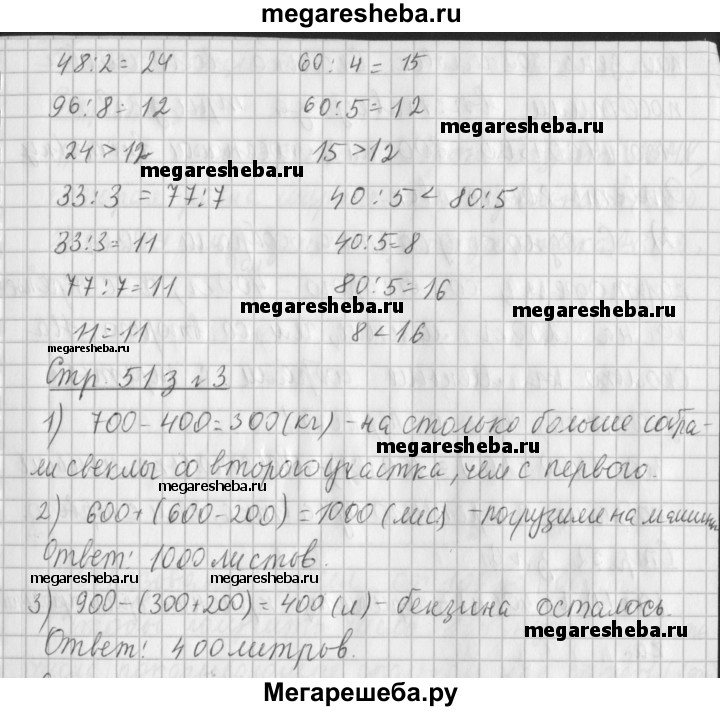 megaresheba.ru
48:2=24 60:4=15
96:8=12 60:5=12
megaresheba.ru
24>12 15>12
megaresheba.ru
33:3=77:7 40:5<80:5
33:3=11 40:5=8
77:7=11 80:5=16
megaresheba.ru megaresheba.ru
11=11 8<16
megaresheba.ru
Стр. 51 з. 3
1) 700-400=300(кг) -на столько больше собра-
megaresheba.ru
ли свеклы со второго участка, чем с первого.
megaresheba.ru
2) 600+(600-200)=1000(лис) -погрузили на машину
Ответ: 1000 листов.
megaresheba.ru megaresheba.ru
3) 900-(300+200)=400(л)-бензина осталось.
megaresheba.ru
Ответ: 400 литров.
Мегарешеба.ру